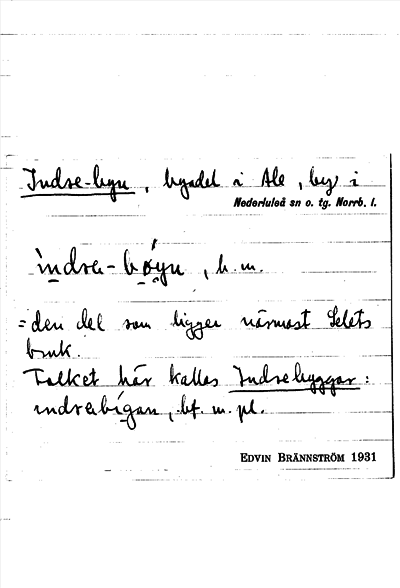 Indre-byn, bydel i Ale, by i
Nederluleå sn o. tg. Norrb. l.
ìndrɐ-bøyn, b. m.
= den del som ligger närmast Selets
bruk.
Folket här kallas Indrebyggar:
indrɐbígan, bf. m. pl.
EDVIN BRÄNNSTRÖM 1931